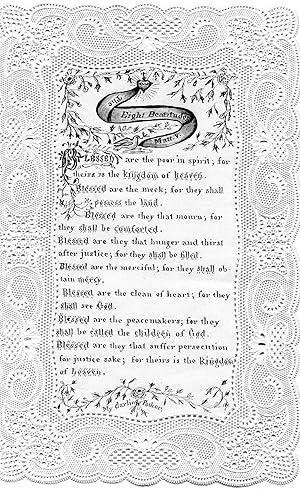 The
Eight Beatitudes
Matt. v.
Blessed are the poor in spirit; for
theirs is the kingdom of heaven.
Blessed are the meek; for they shall
possess the land.
Blessed are they that mourn; for
they shall be comforted.
Blessed are they that hunger and thirst
after justice; for they shall be filled.
Blessed are the merciful; for they shall ob-
tain mercy.
Blessed are the clean of heart; for they
shall see God.
Blessed are the peacemakers; for they
shall be called the children of God.
Blessed are they that suffer persecution
for justice sake; for theirs is the Kingdom
of heaven.